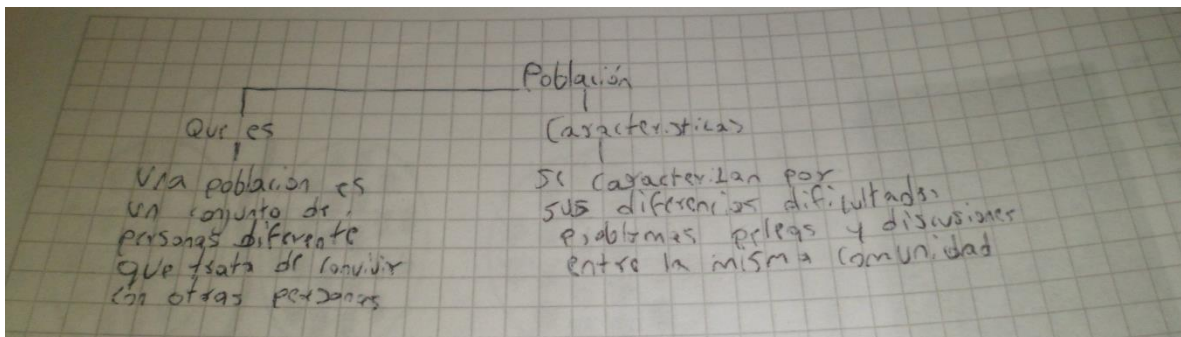 Población
Que es
Una población es
un conjunto de
personas diferente
que trata de convivir
con otras personas
Caracteristicas
se caracterizan por
sus diferencias dificultades
problemas peleas y discusiones
entre la misma comunidad